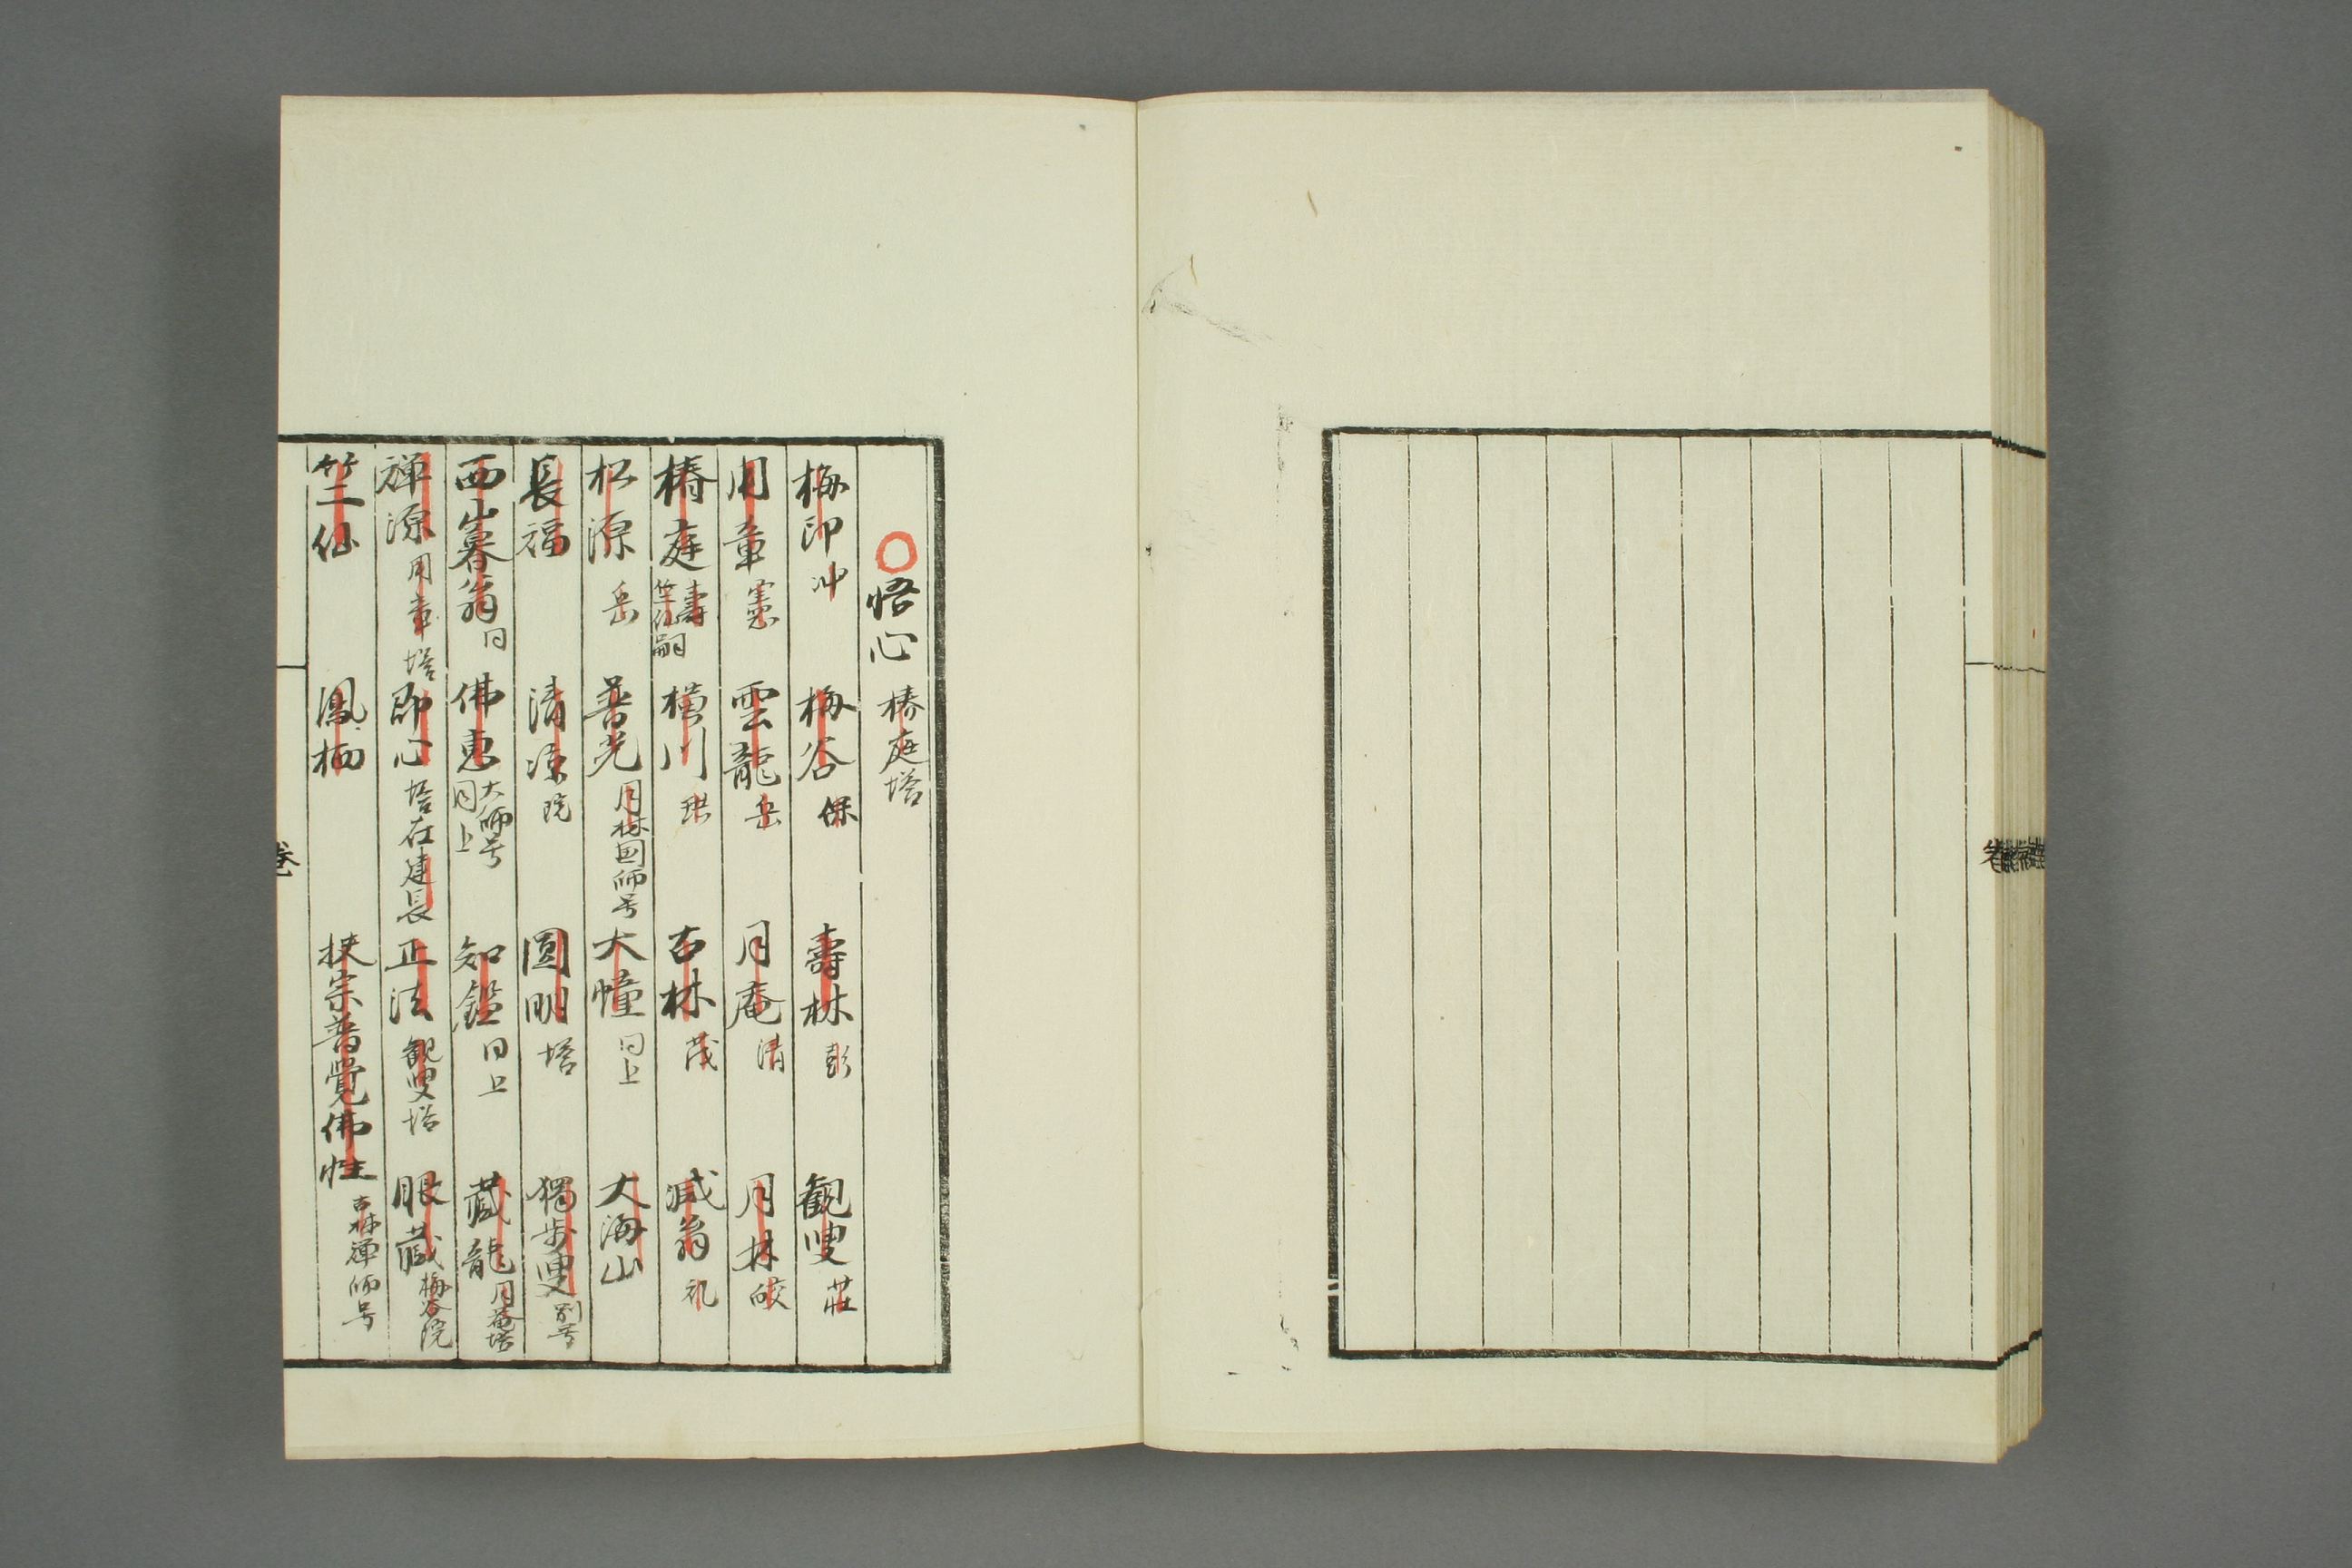 〇悟心 椿庭塔
梅印 冲 梅谷 保 壽林 彭 観叟 莊
用章 憲 雲龍 岳 月庵 清 月林 皎
椿庭 壽 竺仙嗣 横川 珙 古林 茂 滅翁 礼
松源 岳 普光 月林国師号 大幢 同上 大海山
長福 清凉 院 圓明 塔 獨步叟 別号
西山暮翁 同 佛恵 大師号 同上 知鑑 同上 藏龍 月菴塔
禅源 用章塔 即心 塔在建長 正法 観叟塔 眼藏 梅谷院
竺仙 鳳栖 扶宗普覺佛性 古林禅師号
卷